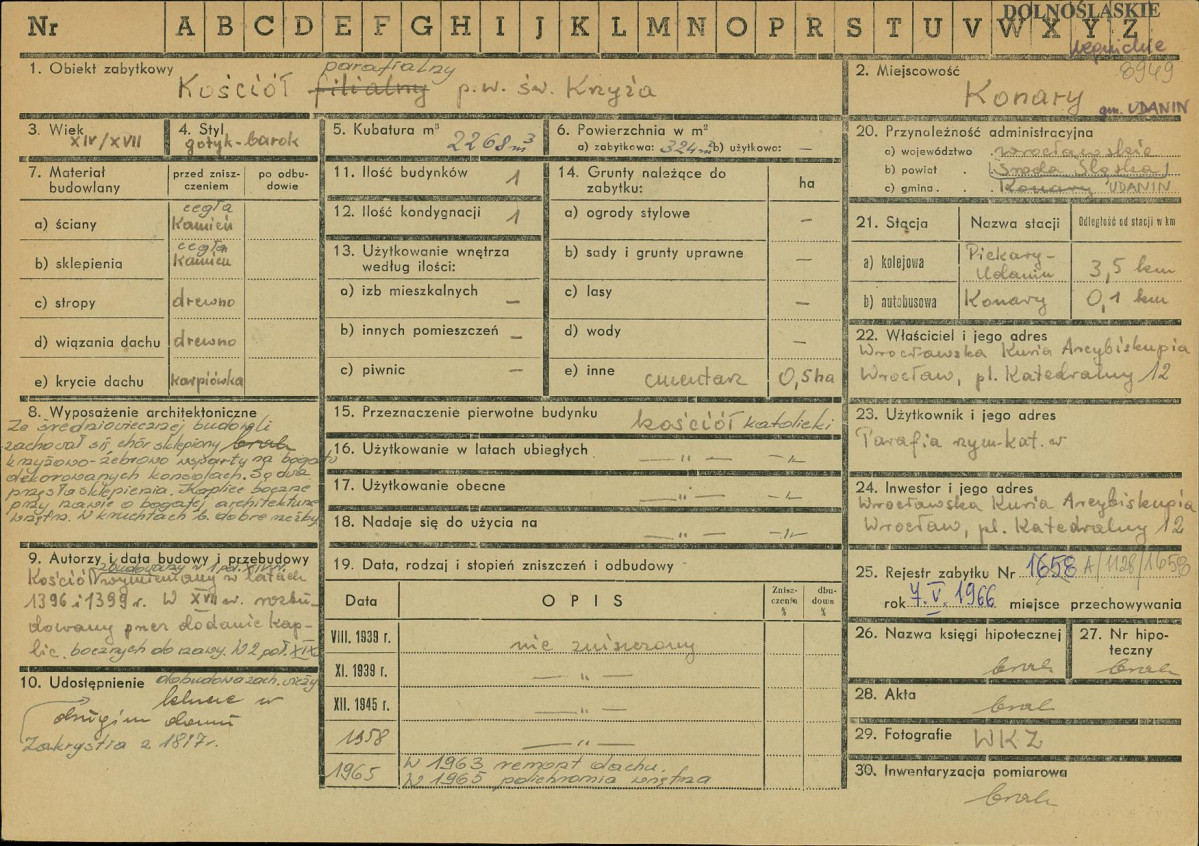 Nr A B C D E F G H I J K L M N O P R S T U V W X Y Z
DOLNOŚLĄSKIE
legnickie
8949
1. Obiekt zabytkowy
parafialny
Kościół filialny p.w. św. Krzyża
2. Miejscowość
Konary gm. UDANIN
3. Wiek
XIV/XVII
4. Styl
gotyk-barok
5. Kubatura m³
2268 m³
6. Powierzchnia w m²
a) zabytkowa: 324m² b) użytkowa: —
7. Materiał budowlany
przed zniszczeniem
po odbudowie
a) ściany
cegła
kamień
b) sklepienia
cegła
kamień
c) stropy drewno
d) wiązania dachu drewno
e) krycie dachu karpiówka
8. Wyposażenie architektoniczne
Ze średniowiecznej budowli
zachował się chór sklepiony brak
krzyżowo-żebrowo wsparty na bogato
dekorowanych konsolach. Są dwa
przęsła sklepienia. Kaplice boczne
przy nawie o bogatej architekturze
wnętrz. W kruchtach b. dobre rzeźby
9. Autorzy i data budowy i przebudowy
zbudowany w 1 poł. XIV w.
Kościół wymieniany w latach
1396 i 1399 r. W XVII w. rozbu-
dowany przez dodanie kap-
lic. bocznych do nawy. W 2 poł. XIX
dobudowa zach. wieży
10. Udostępnienie
klucz w
drugim domu
Zakrystia z 1817r.
11. Ilość budynków 1
12. Ilość kondygnacji 1
13. Użytkowanie wnętrza
według ilości:
a) izb mieszkalnych —
b) innych pomieszczeń —
c) piwnic —
14. Grunty należące do
zabytku:
ha
a) ogrody stylowe —
b) sady i grunty uprawne —
c) lasy —
d) wody —
e) inne cmentarz 0,5 ha
15. Przeznaczenie pierwotne budynku kościół katolicki
16. Użytkowanie w latach ubiegłych —„— -„-
17. Użytkowanie obecne —„— -„-
18. Nadaje się do użycia na —„— -„-
19. Data, rodzaj i stopień zniszczeń i odbudowy
Data OPIS
Zniszczenia %
dbudowa %
VIII. 1939 r. nie zniszczony
XI. 1939 r. —„—
XII. 1945 r. —„—
1958 —„—
1965 W 1963 remont dachu.
W 1965 polichromia wnętrza
20. Przynależność administracyjna
a) województwo wrocławskie
b) powiat Środa Śląska
c) gmina Konary UDANIN
21. Stacja Nazwa stacji Odległość od stacji w km
a) kolejowa Piekary-
Udanin 3,5 km
b) autobusowa Konary 0,1 km
22. Właściciel i jego adres
Wrocławska Kuria Arcybiskupia
Wrocław, pl. Katedralny 12
23. Użytkownik i jego adres
Parafia rzym-kat. w
24. Inwestor i jego adres
Wrocławska Kuria Arcybiskupia
Wrocław, pl. Katedralny 12
25. Rejestr zabytku Nr 1658 A/1128/1658
rok 7.V.1966 miejsce przechowywania
26. Nazwa księgi hipotecznej
brak
27. Nr hipoteczny
brak
28. Akta
brak
29. Fotografie WKZ
30. Inwentaryzacja pomiarowa
brak